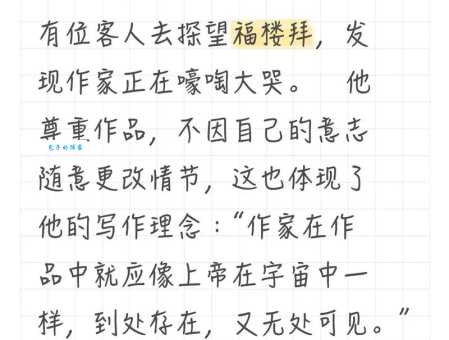 有位客人去探望福楼拜，发
现作家正在嚎啕大哭。 他
尊重作品，不因自己的意志
随意更改情节，这也体现了
他的写作理念：“作家在作
品中就应像上帝在宇宙中一
样，到处存在，又无处可见。”